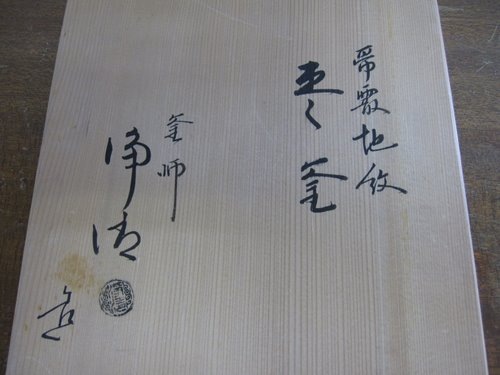 帯霰地紋
棗釜
釜師
浄清
造